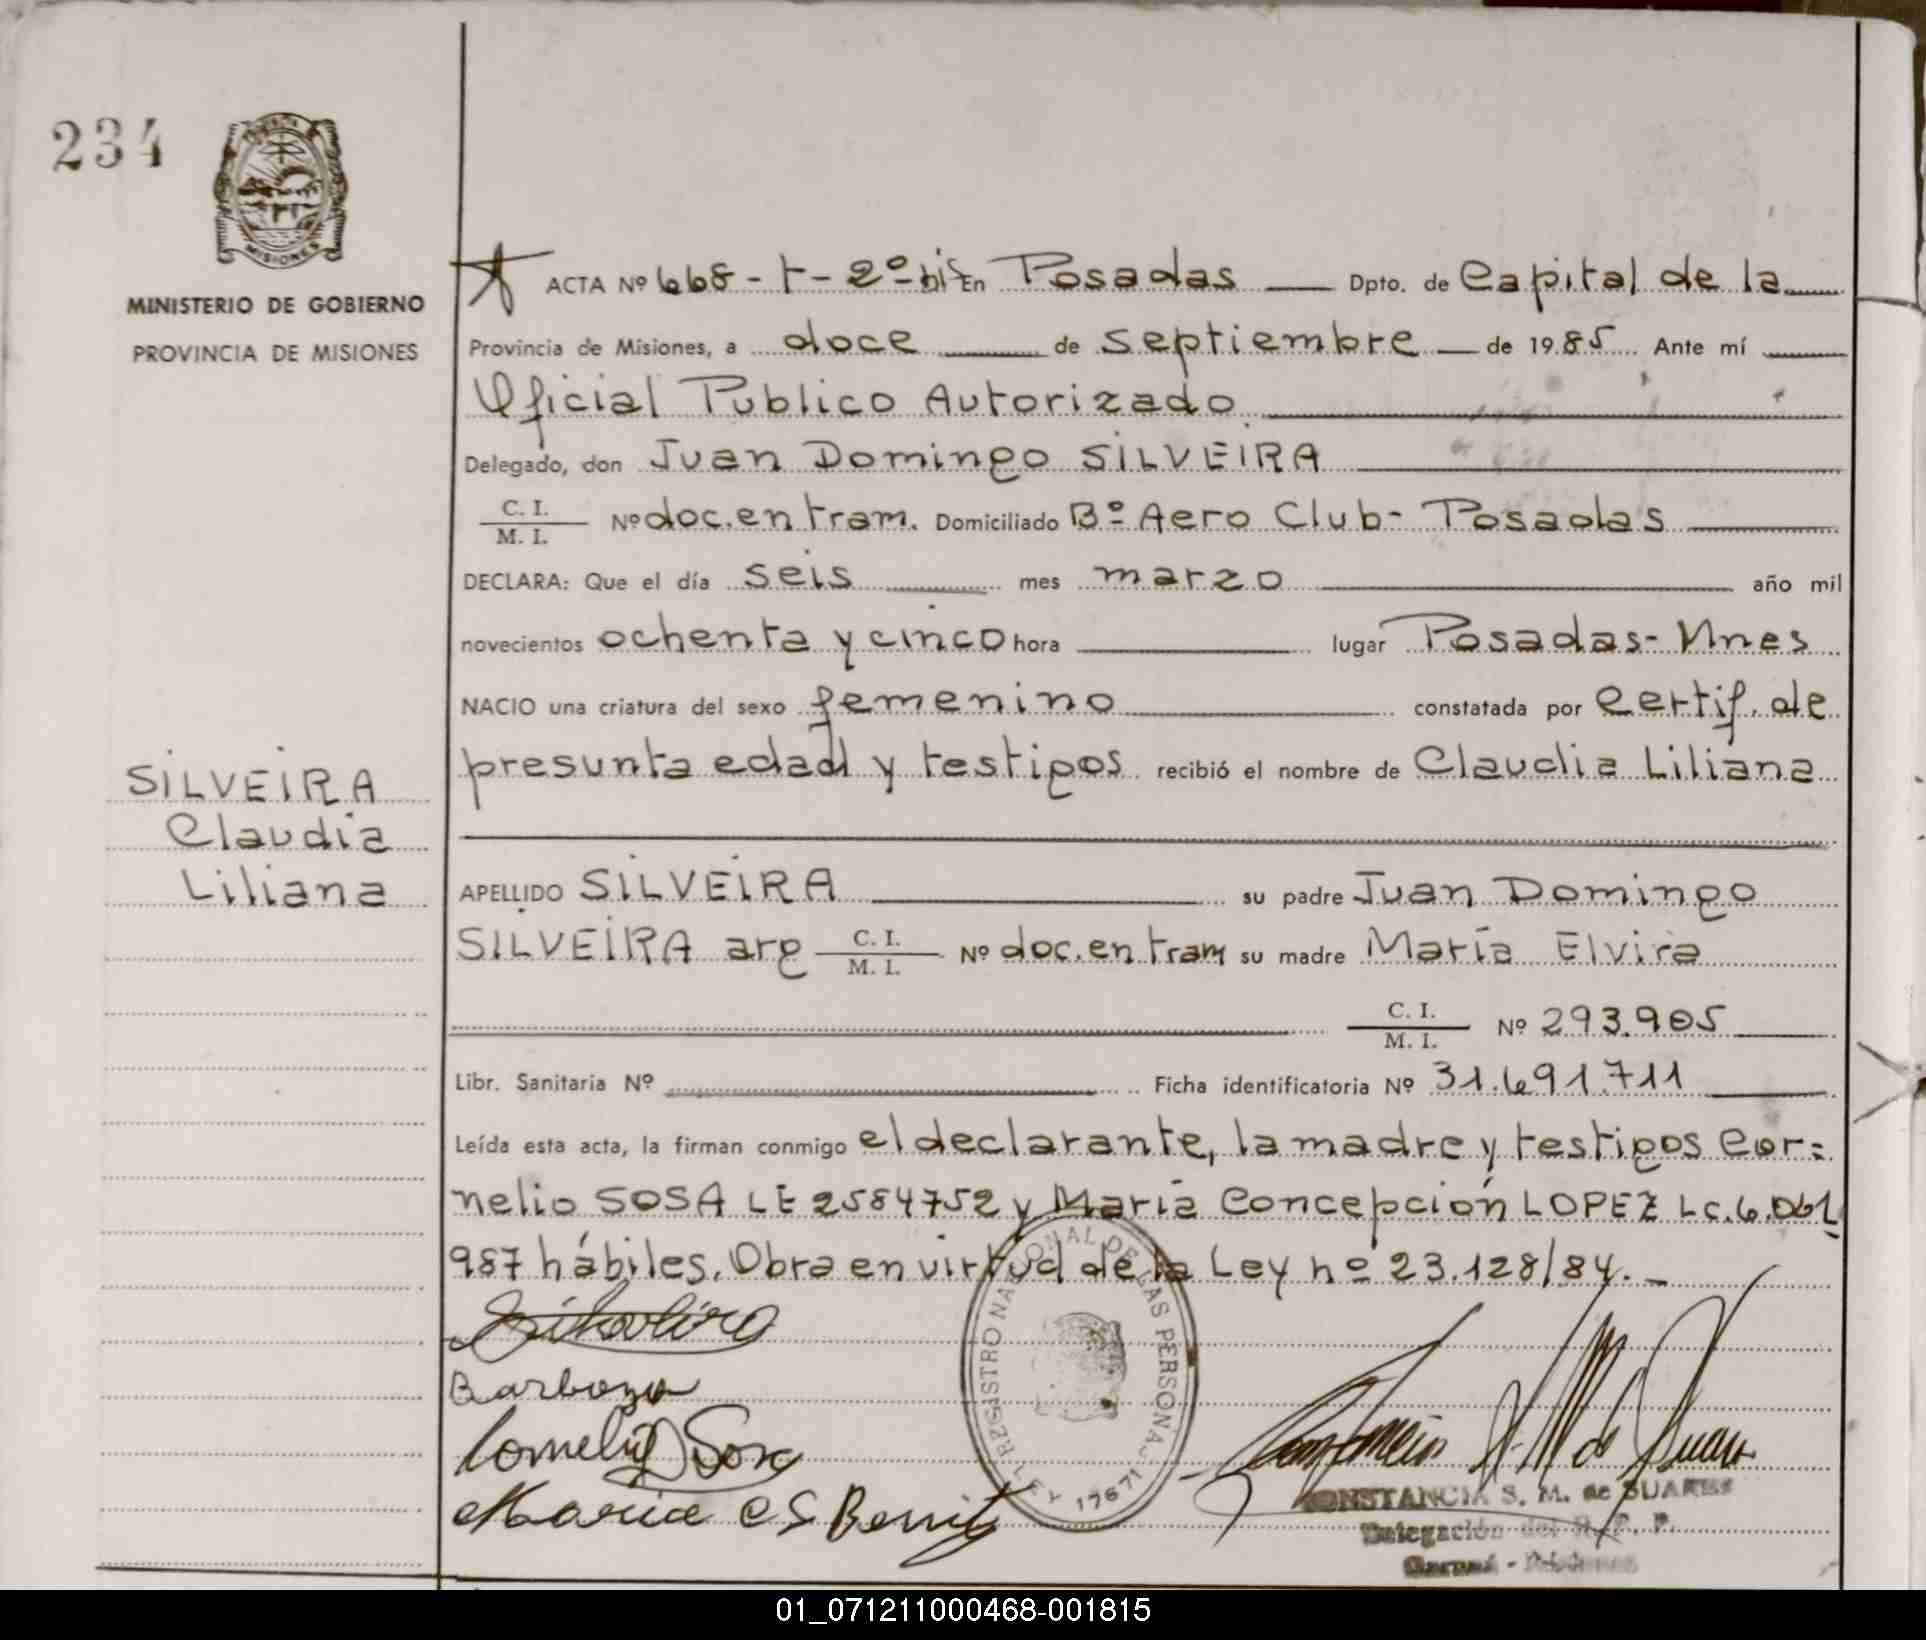 234
MISIONES
MINISTERIO DE GOBIERNO
PROVINCIA DE MISIONES
SILVEIRA
Claudia
Liliana
ACTA Nº 668 - t - 2º bis En Posadas Dpto. de Capital de la
Provincia de Misiones, a doce de septiembre de 1985 Ante mí
Oficial Publico Autorizado
Delegado, don Juan Domingo SILVEIRA
C. I.
M. I. Nº doc. en tram. Domiciliado Bº Aero Club - Posadas
DECLARA: Que el día seis mes marzo año mil
novecientos ochenta y cinco hora lugar Posadas - Mnes
NACIO una criatura del sexo femenino constatada por Certif. de
presunta edad y testigos recibió el nombre de Claudia Liliana
APELLIDO SILVEIRA su padre Juan Domingo
SILVEIRA arg C. I. M. I. Nº doc. en tram su madre María Elvira
C. I.
M. I. Nº 293.905
Libr. Sanitaria Nº Ficha identificatoria Nº 31.691.711
Leída esta acta, la firman conmigo el declarante, la madre y testigos Cor=
nelio SOSA LE 2584752 y María Concepción LOPEZ LC. 6.061
987 hábiles. Obra en virtud de la Ley nº 23.128/84. _
Barboza
Cornelio Sosa
Maria
REGISTRO NACIONAL DE LAS PERSONAS
LEY 17671
CONSTANCIA S. M. de SUARES
Delegación del R. P. P.
01_071211000468-001815